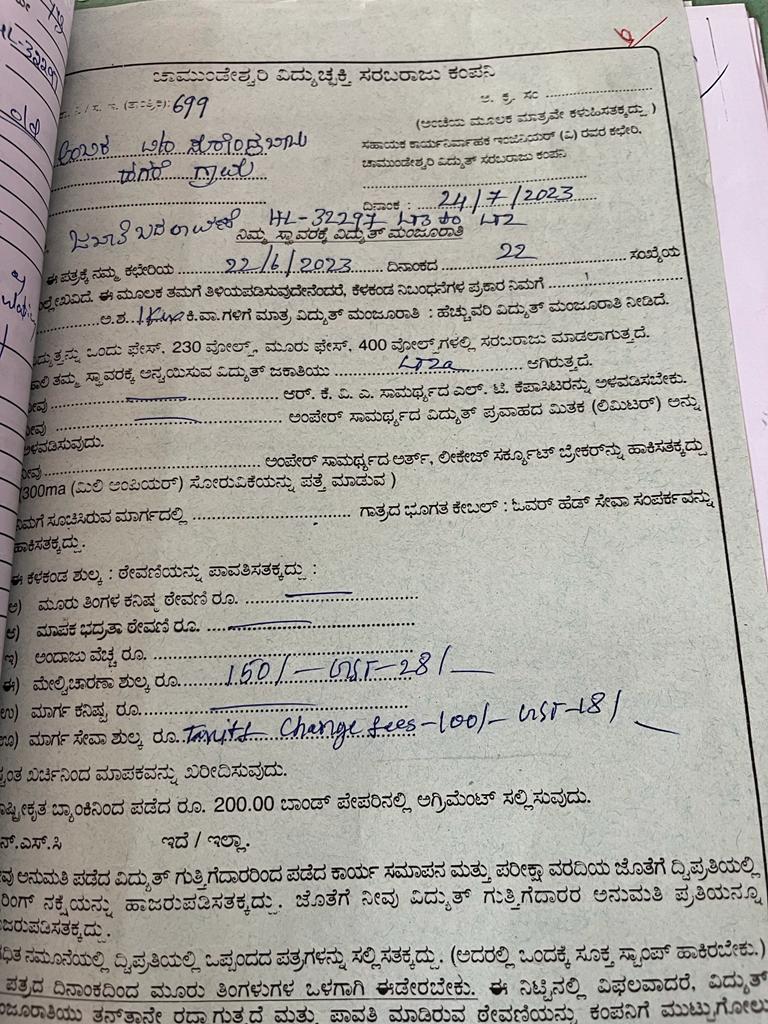 ಚಾಮುಂಡೇಶ್ವರಿ ವಿದ್ಯುಚ್ಛಕ್ತಿ ಸರಬರಾಜು ಕಂಪನಿ
699
ಅ. ಕ್ರ. ಸಂ ........................
(ಅಂಚೆಯ ಮೂಲಕ ಮಾತ್ರವೇ ಕಳುಹಿಸತಕ್ಕದ್ದು )
ಸಹಾಯಕ ಕಾರ್ಯನಿರ್ವಾಹಕ ಇಂಜಿನಿಯರ್ (ವಿ) ರವರ ಕಛೇರಿ,
ಚಾಮುಂಡೇಶ್ವರಿ ವಿದ್ಯುತ್ ಸರಬರಾಜು ಕಂಪನಿ
ಗ್ರಾಮ
ದಿನಾಂಕ : 24/7/2023
HL-32297 LT3 to LT2
ನಿಮ್ಮ ಸ್ಥಾವರಕ್ಕೆ ವಿದ್ಯುತ್ ಮಂಜೂರಾತಿ
ಈ ಪತ್ರಕ್ಕೆ ನಮ್ಮ ಕಛೇರಿಯ 22/6/2023 ದಿನಾಂಕದ 22 ಸಂಖ್ಯೆಯ
ಉಲ್ಲೇಖವಿದೆ. ಈ ಮೂಲಕ ತಮಗೆ ತಿಳಿಯಪಡಿಸುವುದೇನೆಂದರೆ, ಕೆಳಕಂಡ ನಿಬಂಧನೆಗಳ ಪ್ರಕಾರ ನಿಮಗೆ ....................
ಅ.ಶ. 1KW ಕಿ.ವಾ.ಗಳಿಗೆ ಮಾತ್ರ ವಿದ್ಯುತ್ ಮಂಜೂರಾತಿ : ಹೆಚ್ಚುವರಿ ವಿದ್ಯುತ್ ಮಂಜೂರಾತಿ ನೀಡಿದೆ.
ವಿದ್ಯುತ್ತನ್ನು ಒಂದು ಫೇಸ್, 230 ವೋಲ್ಟ್, ಮೂರು ಫೇಸ್, 400 ವೋಲ್ಟ್‌ಗಳಲ್ಲಿ ಸರಬರಾಜು ಮಾಡಲಾಗುತ್ತದೆ.
ಹಾಲಿ ತಮ್ಮ ಸ್ಥಾವರಕ್ಕೆ ಅನ್ವಯಿಸುವ ವಿದ್ಯುತ್ ಜಕಾತಿಯು LT2a ಆಗಿರುತ್ತದೆ.
ನೀವು .................... ಆರ್. ಕೆ. ವಿ. ಎ. ಸಾಮರ್ಥ್ಯದ ಎಲ್. ಟಿ. ಕೆಪಾಸಿಟರನ್ನು ಅಳವಡಿಸಬೇಕು.
ನೀವು .................... ಅಂಪೇರ್ ಸಾಮರ್ಥ್ಯದ ವಿದ್ಯುತ್ ಪ್ರವಾಹದ ಮಿತಕ (ಲಿಮಿಟರ್) ಅನ್ನು
ಅಳವಡಿಸುವುದು.
ನೀವು .................... ಅಂಪೇರ್ ಸಾಮರ್ಥ್ಯದ ಅರ್ತ್, ಲೀಕೇಜ್ ಸರ್ಕ್ಯೂಟ್ ಬ್ರೇಕರ್‌ನ್ನು ಹಾಕಿಸತಕ್ಕದ್ದು
(300ma (ಮಿಲಿ ಅಂಪಿಯರ್) ಸೋರುವಿಕೆಯನ್ನು ಪತ್ತೆ ಮಾಡುವ )
ನಿಮಗೆ ಸೂಚಿಸಿರುವ ಮಾರ್ಗದಲ್ಲಿ .................... ಗಾತ್ರದ ಭೂಗತ ಕೇಬಲ್ : ಓವರ್ ಹೆಡ್ ಸೇವಾ ಸಂಪರ್ಕವನ್ನು
ಹಾಕಿಸತಕ್ಕದ್ದು.
ಈ ಕೆಳಕಂಡ ಶುಲ್ಕ : ಠೇವಣಿಯನ್ನು ಪಾವತಿಸತಕ್ಕದ್ದು :
ಅ) ಮೂರು ತಿಂಗಳ ಕನಿಷ್ಠ ಠೇವಣಿ ರೂ. ....................
ಆ) ಮಾಪಕ ಭದ್ರತಾ ಠೇವಣಿ ರೂ. ....................
ಇ) ಅಂದಾಜು ವೆಚ್ಚ ರೂ. ....................
ಈ) ಮೇಲ್ವಿಚಾರಣಾ ಶುಲ್ಕ ರೂ. 150/- GST-28/
ಉ) ಮಾರ್ಗ ಕನಿಷ್ಟ ರೂ. ....................
ಊ) ಮಾರ್ಗ ಸೇವಾ ಶುಲ್ಕ ರೂ. Tariff Change fees-100/- GST-18/
ಸ್ವಂತ ಖರ್ಚಿನಿಂದ ಮಾಪಕವನ್ನು ಖರೀದಿಸುವುದು.
ರಾಷ್ಟ್ರೀಕೃತ ಬ್ಯಾಂಕಿನಿಂದ ಪಡೆದ ರೂ. 200.00 ಬಾಂಡ್ ಪೇಪರಿನಲ್ಲಿ ಅಗ್ರಿಮೆಂಟ್ ಸಲ್ಲಿಸುವುದು.
ಎನ್.ಎಸ್.ಸಿ ಇದೆ / ಇಲ್ಲಾ.
ನೀವು ಅನುಮತಿ ಪಡೆದ ವಿದ್ಯುತ್ ಗುತ್ತಿಗೆದಾರರಿಂದ ಪಡೆದ ಕಾರ್ಯ ಸಮಾಪನ ಮತ್ತು ಪರೀಕ್ಷಾ ವರದಿಯ ಜೊತೆಗೆ ದ್ವಿಪ್ರತಿಯಲ್ಲಿ
ನಕ್ಷೆಯನ್ನು ಹಾಜರುಪಡಿಸತಕ್ಕದ್ದು. ಜೊತೆಗೆ ನೀವು ವಿದ್ಯುತ್ ಗುತ್ತಿಗೆದಾರರ ಅನುಮತಿ ಪ್ರತಿಯನ್ನೂ
ಹಾಜರುಪಡಿಸತಕ್ಕದ್ದು.
ನಮೂನೆಯಲ್ಲಿ ದ್ವಿಪ್ರತಿಯಲ್ಲಿ ಒಪ್ಪಂದದ ಪತ್ರಗಳನ್ನು ಸಲ್ಲಿಸತಕ್ಕದ್ದು. (ಅದರಲ್ಲಿ ಒಂದಕ್ಕೆ ಸೂಕ್ತ ಸ್ಟಾಂಪ್ ಹಾಕಿರಬೇಕು.)
ಪತ್ರದ ದಿನಾಂಕದಿಂದ ಮೂರು ತಿಂಗಳುಗಳ ಒಳಗಾಗಿ ಈಡೇರಬೇಕು. ಈ ನಿಟ್ಟಿನಲ್ಲಿ ವಿಫಲವಾದರೆ, ವಿದ್ಯುತ್
ಮಂಜೂರಾತಿಯು ತನ್‌ತಾನೇ ರದ್ದಾಗುತ್ತದೆ ಮತ್ತು ಪಾವತಿ ಮಾಡಿರುವ ಠೇವಣಿಯನ್ನು ಕಂಪನಿಗೆ ಮುಟ್ಟುಗೋಲು